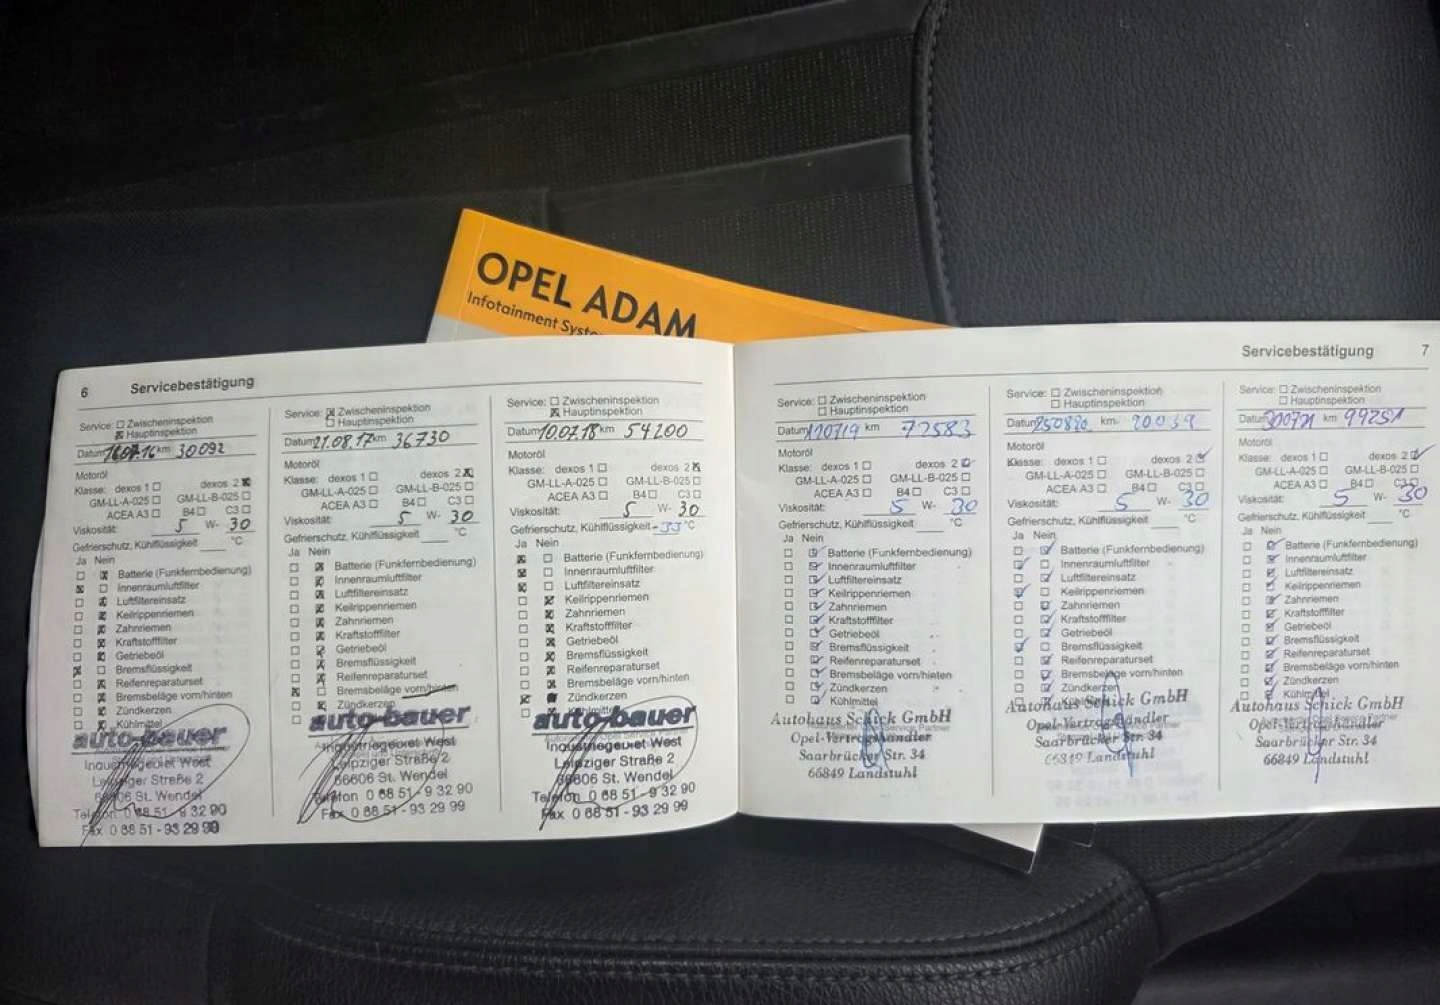 OPEL ADAM
Infotainment System
6 Servicebestätigung
Service: Zwischeninspektion
Hauptinspektion
Datum km 30092
Motoröl
Klasse: dexos 1 dexos 2
GM-LL-A-025 GM-LL-B-025
ACEA A3 B4 C3
Viskosität: 5 W- 30
Gefrierschutz, Kühlflüssigkeit °C
Ja Nein
Batterie (Funkfernbedienung)
Innenraumluftfilter
Luftfiltereinsatz
Keilrippenriemen
Zahnriemen
Kraftstofffilter
Getriebeöl
Bremsflüssigkeit
Reifenreparaturset
Bremsbeläge vorn/hinten
Zündkerzen
Kühlmittel
auto-bauer
Industriegebiet West
Leipziger Straße 2
66606 St. Wendel
Telefon 0 68 51 - 9 32 90
Fax 0 68 51 - 93 29 99
Service: Zwischeninspektion
Hauptinspektion
Datum 21.08.17 km 36730
Motoröl
Klasse: dexos 1 dexos 2
GM-LL-A-025 GM-LL-B-025
ACEA A3 B4 C3
Viskosität: 5 W- 30
Gefrierschutz, Kühlflüssigkeit °C
Ja Nein
Batterie (Funkfernbedienung)
Innenraumluftfilter
Luftfiltereinsatz
Keilrippenriemen
Zahnriemen
Kraftstofffilter
Getriebeöl
Bremsflüssigkeit
Reifenreparaturset
Bremsbeläge vorn/hinten
Zündkerzen
auto-bauer
Industriegebiet West
Leipziger Straße 2
66606 St. Wendel
Telefon 0 68 51 - 9 32 90
Fax 0 68 51 - 93 29 99
Service: Zwischeninspektion
Hauptinspektion
Datum 10.07.18 km 54200
Motoröl
Klasse: dexos 1 dexos 2
GM-LL-A-025 GM-LL-B-025
ACEA A3 B4 C3
Viskosität: 5 W- 30
Gefrierschutz, Kühlflüssigkeit -33 °C
Ja Nein
Batterie (Funkfernbedienung)
Innenraumluftfilter
Luftfiltereinsatz
Keilrippenriemen
Zahnriemen
Kraftstofffilter
Getriebeöl
Bremsflüssigkeit
Reifenreparaturset
Bremsbeläge vorn/hinten
Zündkerzen
Kühlmittel
auto-bauer
Industriegebiet West
Leipziger Straße 2
66606 St. Wendel
Telefon 0 68 51 - 9 32 90
Fax 0 68 51 - 93 29 99
Servicebestätigung 7
Service: Zwischeninspektion
Hauptinspektion
Datum 120719 km 72583
Motoröl
Klasse: dexos 1 dexos 2
GM-LL-A-025 GM-LL-B-025
ACEA A3 B4 C3
Viskosität: 5 W- 30
Gefrierschutz, Kühlflüssigkeit °C
Ja Nein
Batterie (Funkfernbedienung)
Innenraumluftfilter
Luftfiltereinsatz
Keilrippenriemen
Zahnriemen
Kraftstofffilter
Getriebeöl
Bremsflüssigkeit
Reifenreparaturset
Bremsbeläge vorn/hinten
Zündkerzen
Kühlmittel
Autohaus Schick GmbH
Opel-Vertragshändler
Saarbrücker Str. 34
66849 Landstuhl
Service: Zwischeninspektion
Hauptinspektion
Datum km
Motoröl
Klasse: dexos 1 dexos 2
GM-LL-A-025 GM-LL-B-025
ACEA A3 B4 C3
Viskosität: 5 W- 30
Gefrierschutz, Kühlflüssigkeit °C
Ja Nein
Batterie (Funkfernbedienung)
Innenraumluftfilter
Luftfiltereinsatz
Keilrippenriemen
Zahnriemen
Kraftstofffilter
Getriebeöl
Bremsflüssigkeit
Reifenreparaturset
Bremsbeläge vorn/hinten
Zündkerzen
Autohaus Schick GmbH
Opel-Vertragshändler
Saarbrücker Str. 34
66849 Landstuhl
Service: Zwischeninspektion
Hauptinspektion
Datum km 99251
Motoröl
Klasse: dexos 1 dexos 2
GM-LL-A-025 GM-LL-B-025
ACEA A3 B4 C3
Viskosität: 5 W- 30
Gefrierschutz, Kühlflüssigkeit °C
Ja Nein
Batterie (Funkfernbedienung)
Innenraumluftfilter
Luftfiltereinsatz
Keilrippenriemen
Zahnriemen
Kraftstofffilter
Getriebeöl
Bremsflüssigkeit
Reifenreparaturset
Bremsbeläge vorn/hinten
Zündkerzen
Kühlmittel
Autohaus Schick GmbH
Opel-Vertragshändler
Saarbrücker Str. 34
66849 Landstuhl